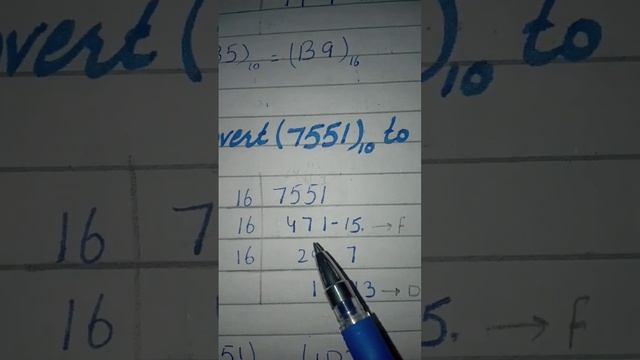 35)₁₀ = (B9)₁₆
vert (7551)₁₀ to
16 7551
16 471-15. → F
16 2 7
1 13 → D